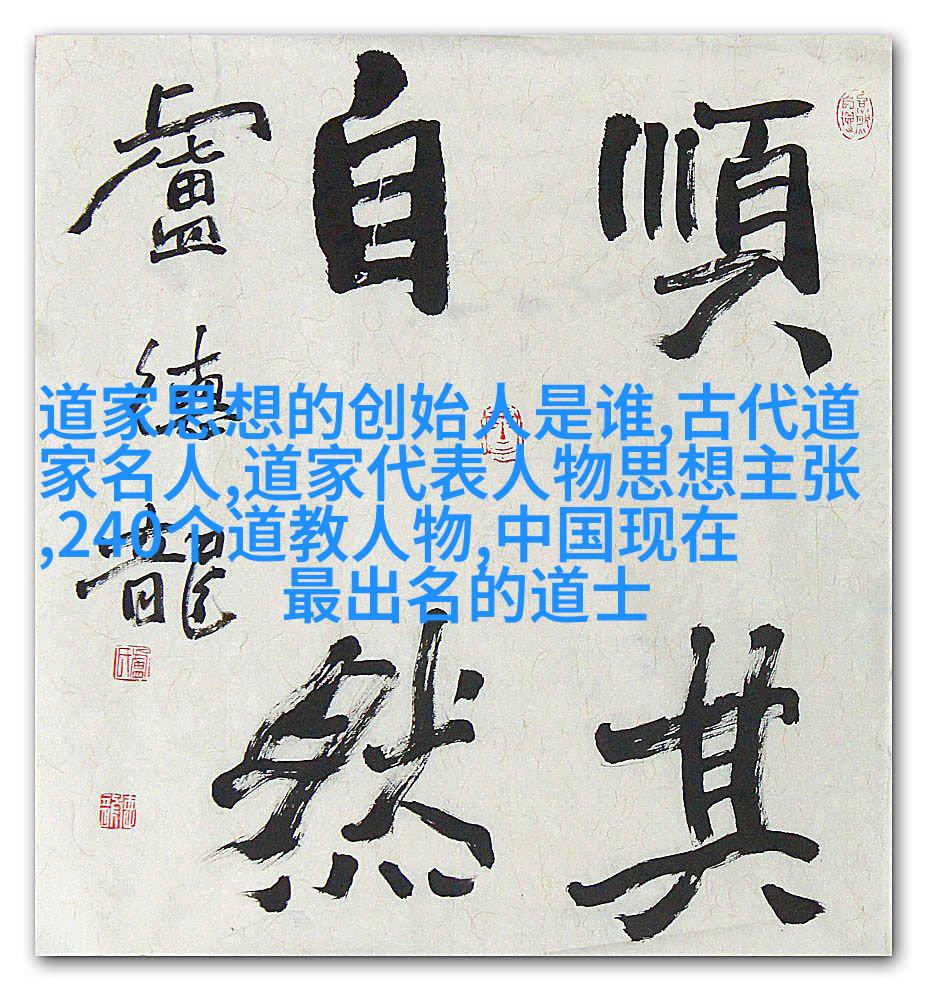 順其
自然
盧德龍
道家思想的创始人是谁,古代道
家名人,道家代表人物思想主张
,240个道教人物,中国现在
最出名的道士